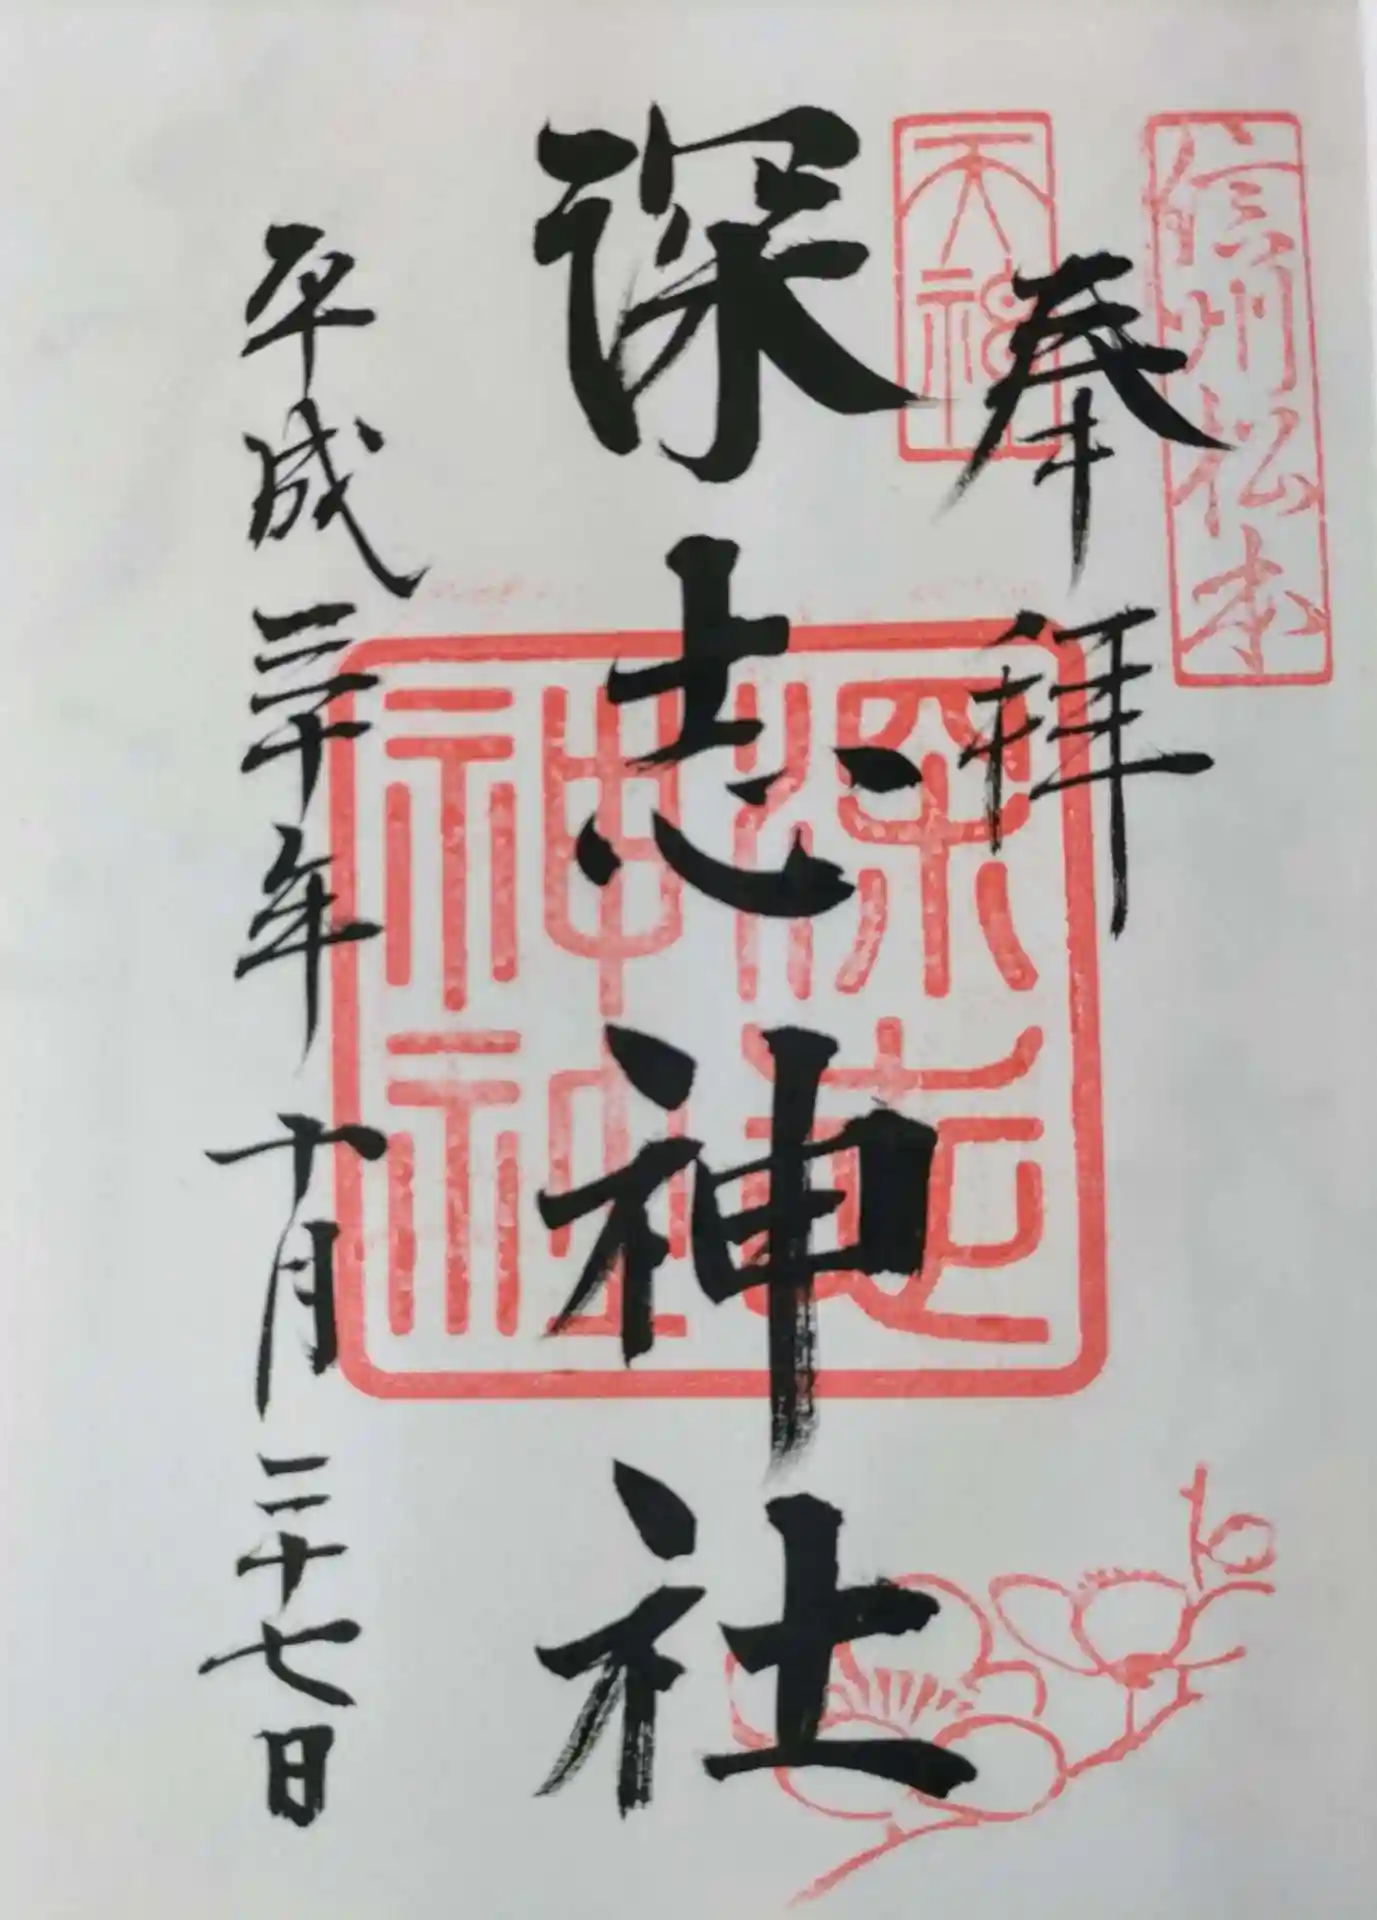 信州松本
奉拝
天神
深志神社
深志
神社
平成三十年十月二十七日